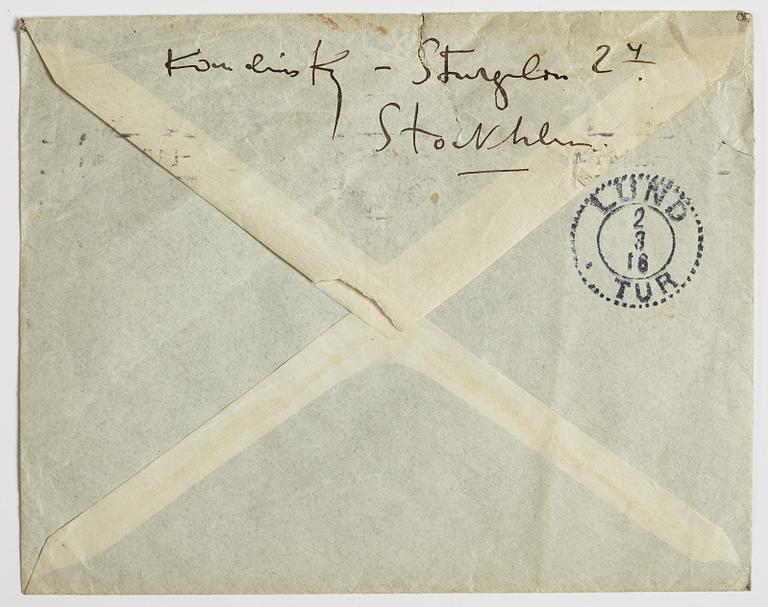 Kandinsky – Sturegatan 24.
Stockholm.
LUND
2
3
16
TUR